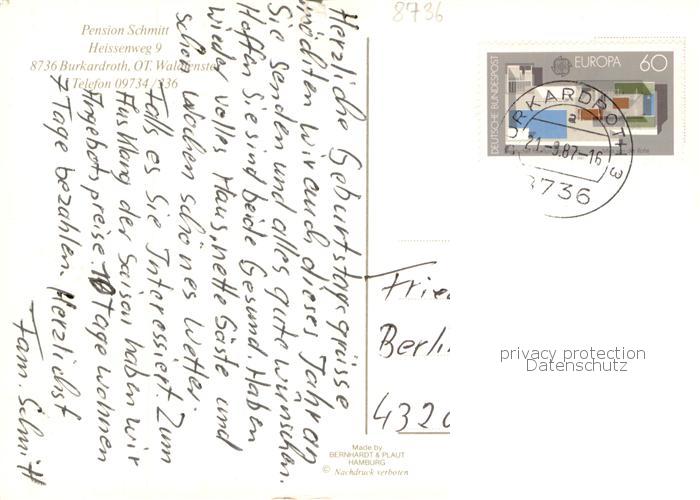 8736
Pension Schmitt
Heissenweg 9
8736 Burkardroth, OT. Waldfenster
Telefon 09734 / 336
Herzliche Geburtstagsgrüsse
möchten wir euch dieses Jahr an
Sie senden und alles gute wünschen.
Hoffen Sie sind beide Gesund. Haben
wieder volles Haus, nette Gäste und
schon Wochen schönes Wetter.
Falls es Sie Interessiert. Zum
Ausklang der Saison haben wir
Angebotspreise. 10 Tage wohnen
7 Tage bezahlen. Herzlichst
Fam. Schmitt
DEUTSCHE BUNDESPOST
EUROPA 60
BURKARDROTH 3
a
21.-9.87-16
8736
Frie
Berli
432
privacy protection
Datenschutz
Made by
BERNHARDT & PLAUT
HAMBURG
© Nachdruck verboten